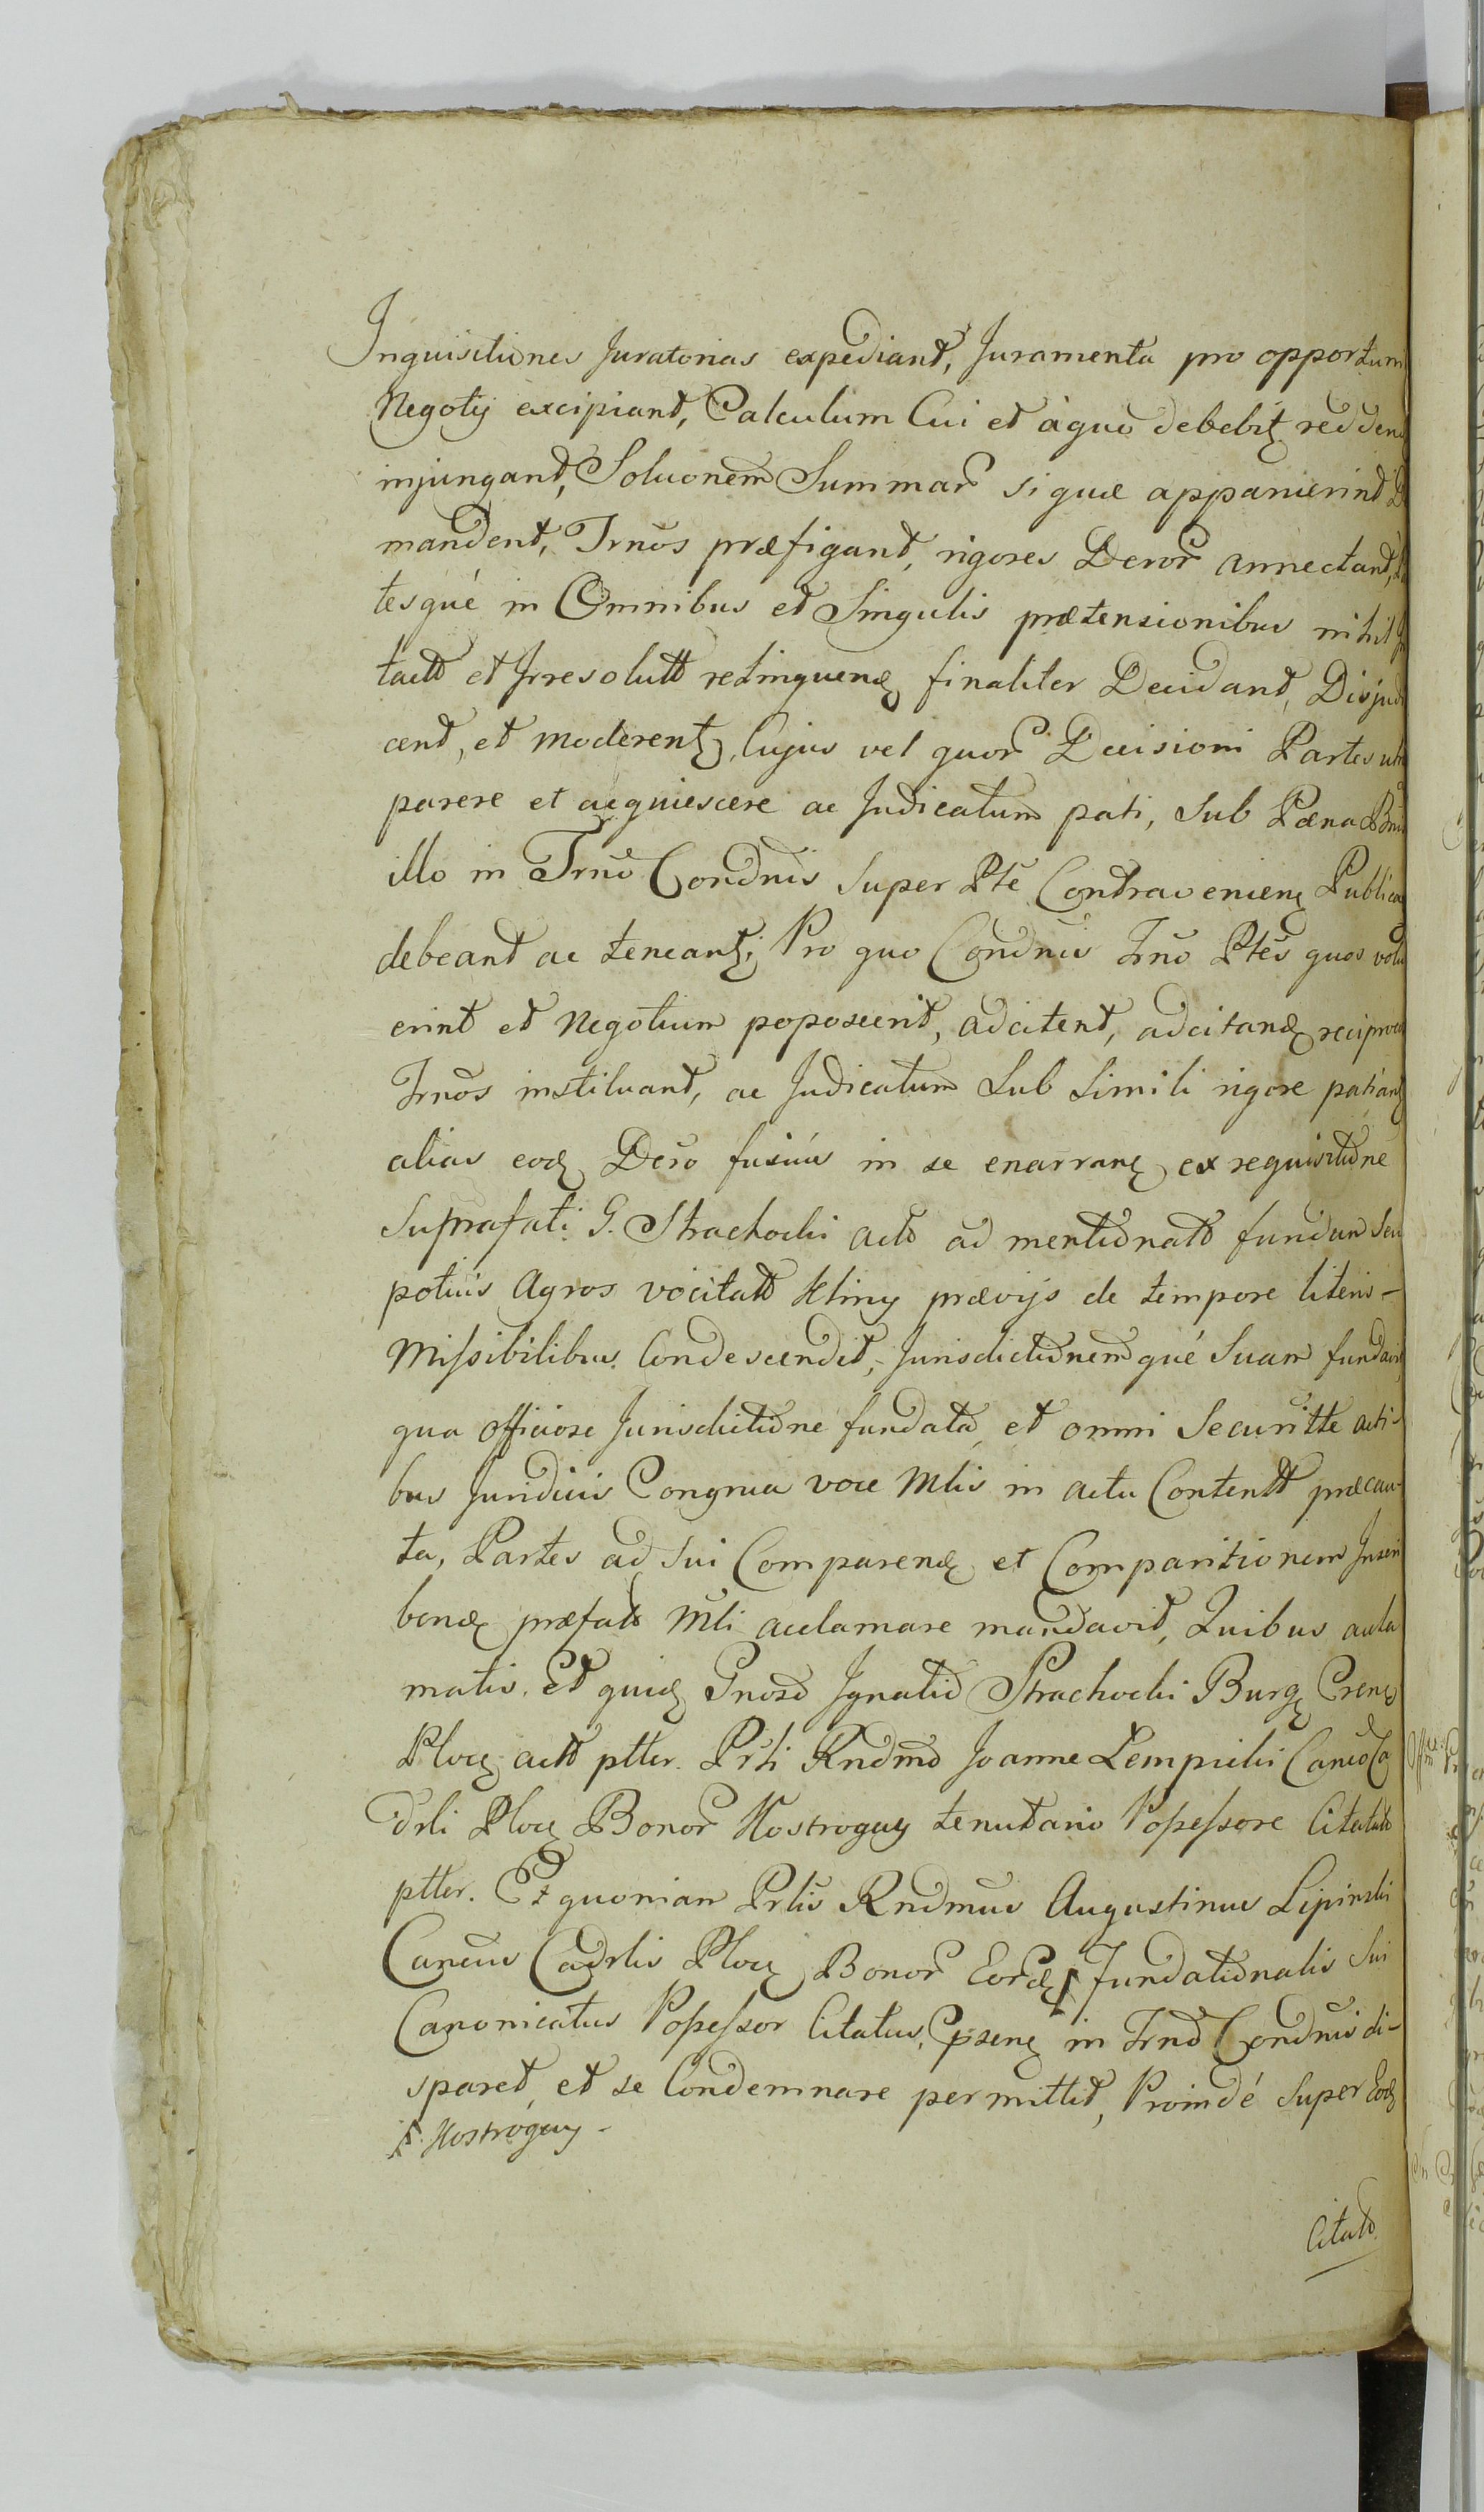 Inquisitiones Juratorias expediant, Juramenta pro opportun
Negotij excipiant, Calculum Cui et à quō debebit redden
injungant, Soluōnem Summar si quæ apparuerint
mandent, Trnōs præfigant, rigores Decror annectant,
tesqué in Omnibus et Singulis prætensionibus nihil
tactt et Irresolutt relinquenđ finaliter Decidant, Disjudi
cent, et moderent, Cujus vel quor Decisioni Partes
parere et acquiescere ac Judicatum pati, sub Pœna
illo in Trnō Condnis super Pte Contravenien Publican
debeant ac teneant; Pro quo Condnis Trnō Ptes quos volu
erint et Negotium poposcerit, adcitent, adcitand reciproce
Trnōs instituant, ac Judicatum Sub Simili rigore patiant
alias eod Decrō fusius in se enarran ex requisitiōne
Suprafati G. Strachocki actt ad mentiōnatt fundum seu
potius Agros vocitatt Kliny prævijs de tempore literis -
Missibilibus Condescendit, Jurisdictiōnemqué Suam fundavit,
qua officiose Jurisdictiōne fundata, et omni Securitte acti-
bus Juridicis Congrua voce Mtlis in actu Contentt præcau-
ta, Partes ad sui Comparend et Comparitionem Inscri
bend præfatt Mtli acclamare mandavit, Quibus accla
matis. Et quid Gnoso Ignatio Strachocki Burg Cren
Ploc actt ptter. Prti Rndmo Joanne Lempicki Canco Ca
drli Ploc Bonor Nostroguy tenutario Possessore Citatt
ptter. Et quoniam Prtis Rndmus Augustinus Lipinski
Cancus Cadrlis Ploc Bonor Eord fundatiōnalis sui
Canonicatus Possessor Citatus, Cpsen in Trnō Condnis di-
sparet, et se Condemnare permittit, Proindé super Eod
Nostroguy -
Citatt